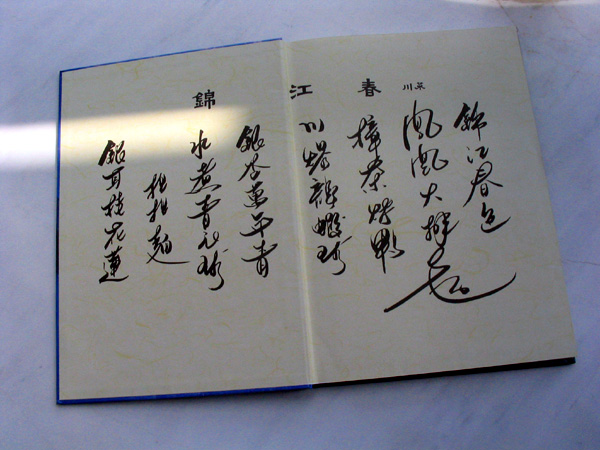 錦江春 川菜
錦江春色
鳳凰大拼
樟茶鴨
川龍蝦球
銀杏萬年青
水煮青衣球
担担麵
銀耳桂花蓮